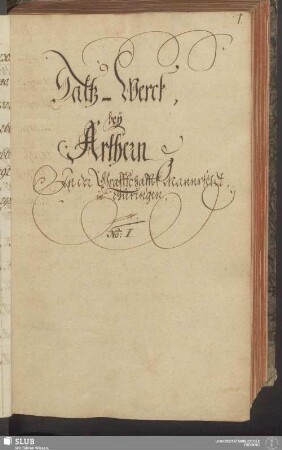 1
Saltz-Werck,
bey
Arthern
In der Graffschafft Mannsfeldt
in Thüringen.
No: I.
SLUB
Wir führen Wissen.